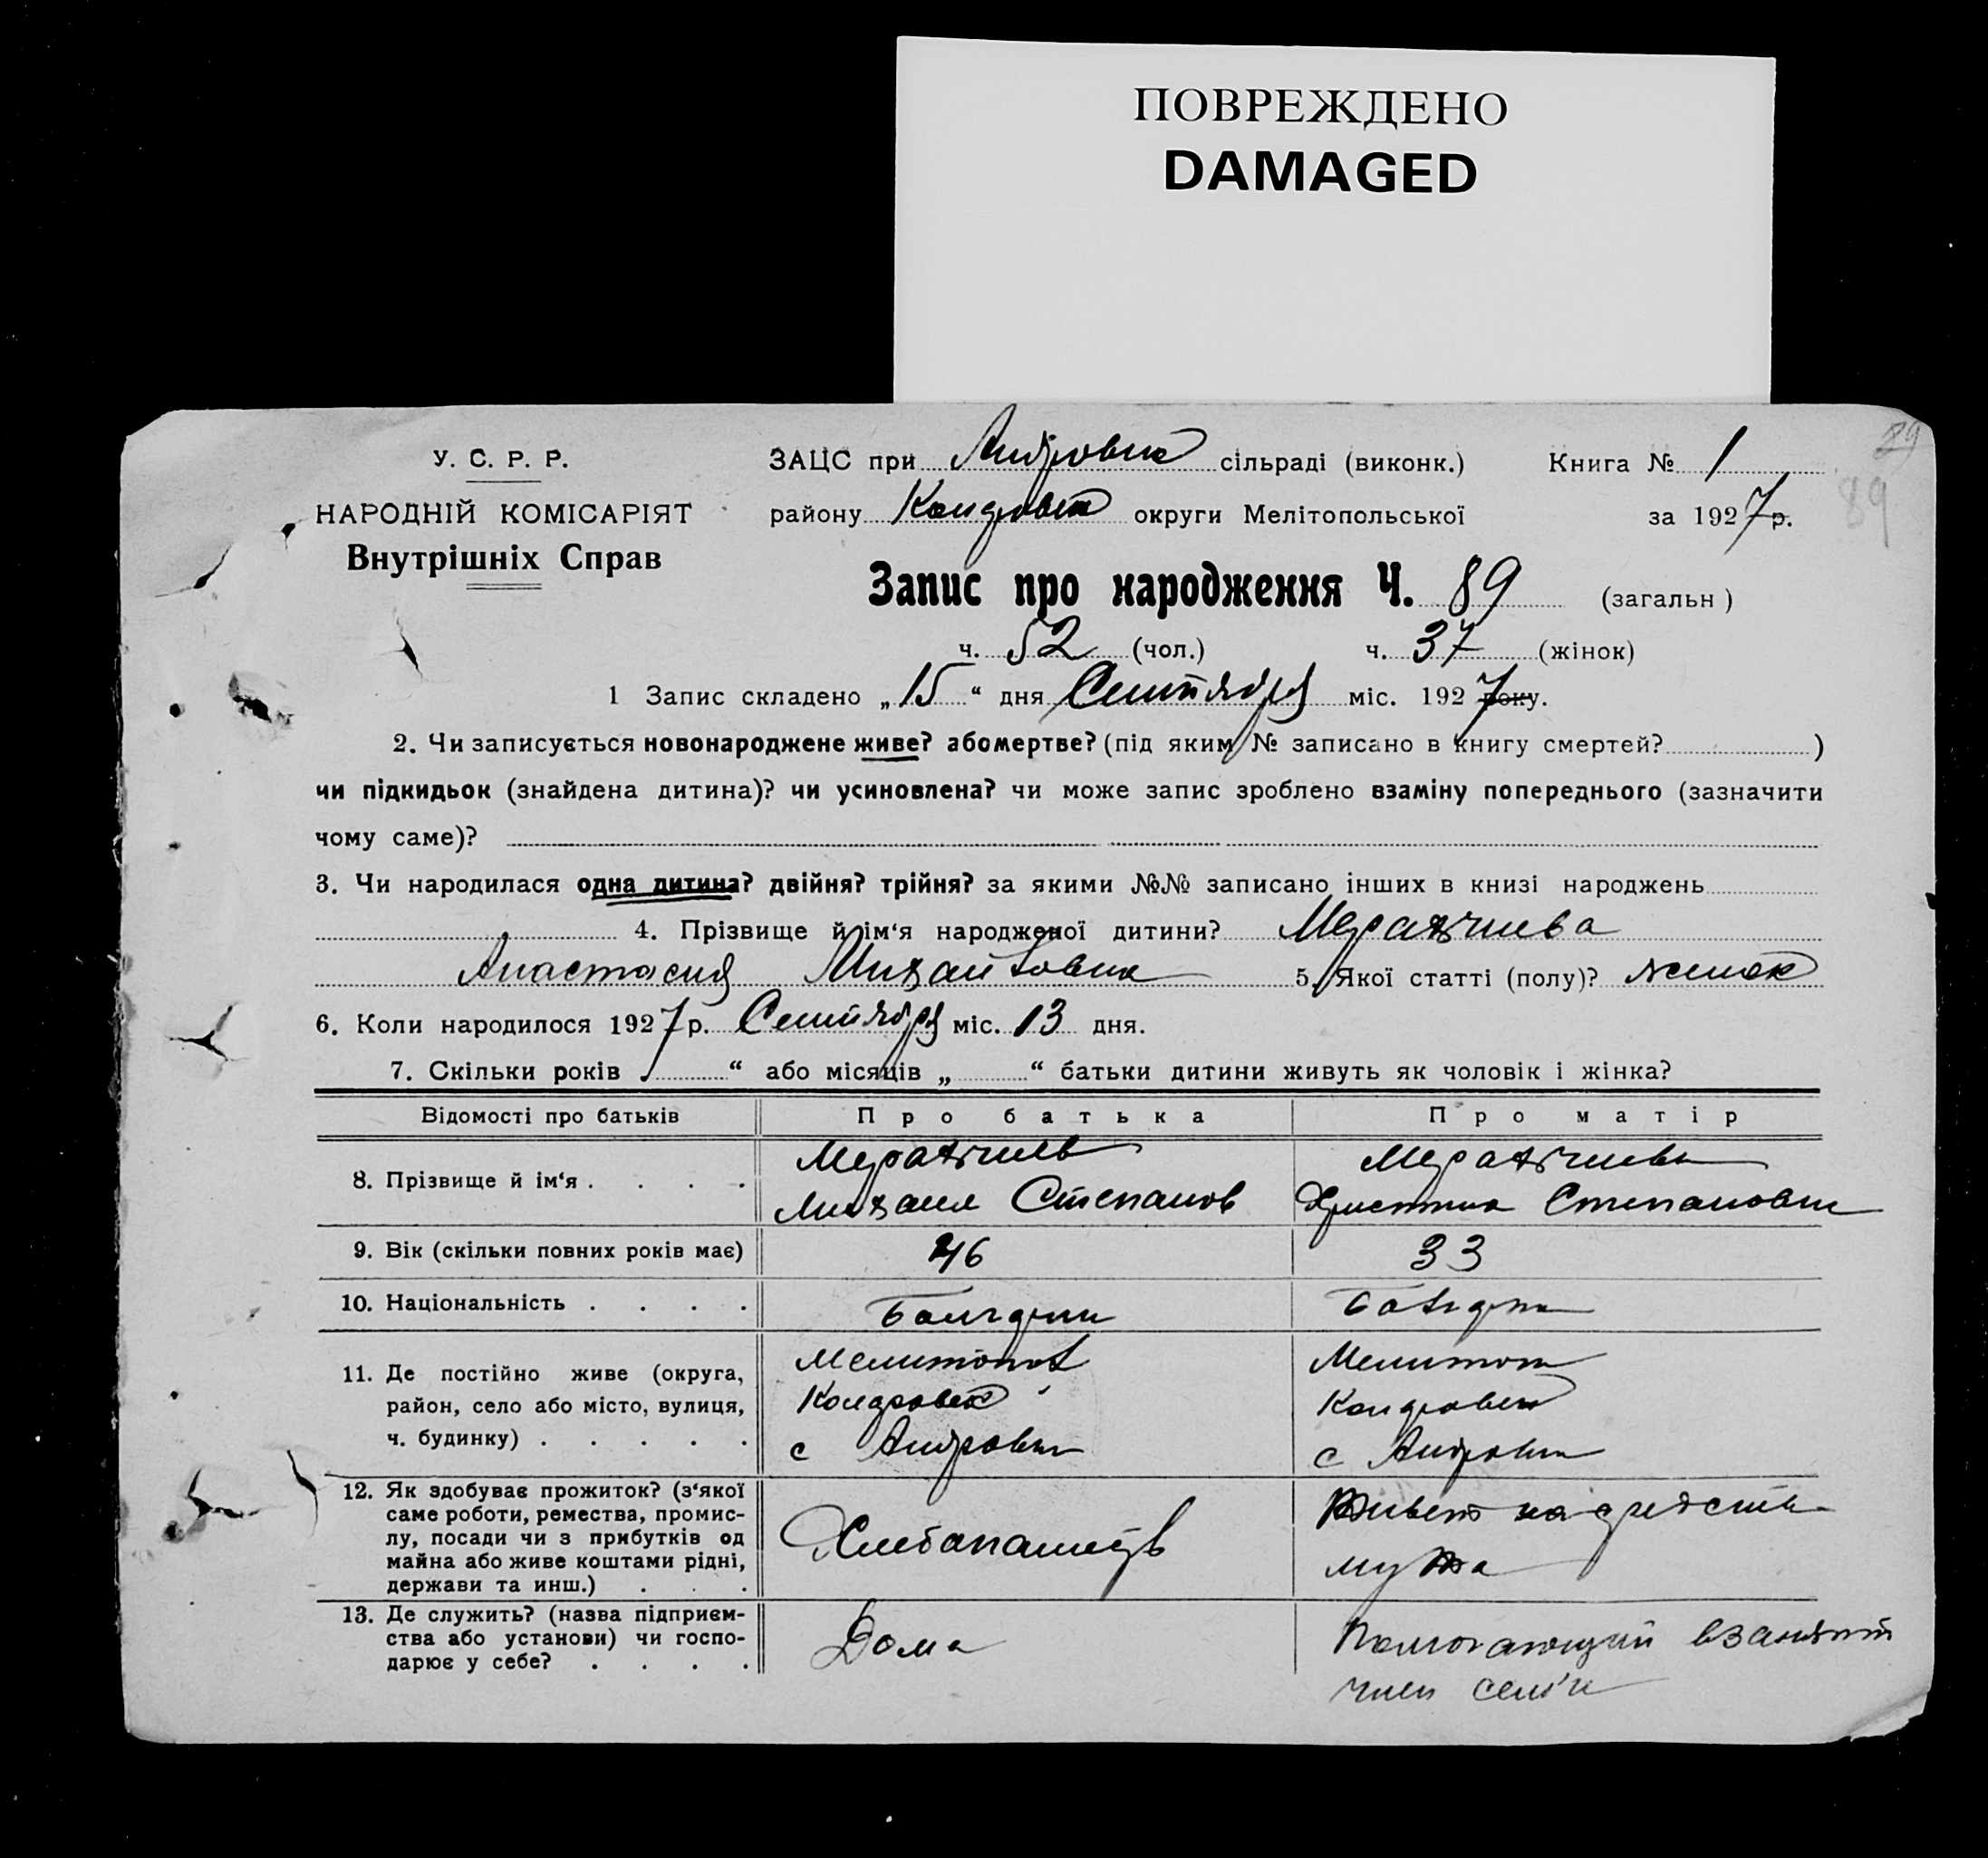 ПОВРЕЖДЕНО
DAMAGED
89
89
У. С. Р. Р.
НАРОДНІЙ КОМІСАРІЯТ
Внутрішніх Справ
ЗАЦС при Андровск сільраді (виконк.) Книга № 1
району Кондровск округи Мелітопольської за 1927 р.
Запис про народження Ч. 89 (загальн)
ч. 52 (чол.) ч. 37 (жінок)
1 Запис складено „15“ дня Сентября міс. 1927 року.
2. Чи записується новонароджене живе? або мертве? (під яким № записано в книгу смертей? )
чи підкидьок (знайдена дитина)? чи усиновлена? чи може запис зроблено взаміну попереднього (зазначити
чому саме)?
3. Чи народилася одна дитина? двійня? трійня? за якими №№ записано інших в книзі народжень
4. Прізвище й ім‘я народженої дитини?
Анастасия Михайловна 5. Якої статті (полу)? женск
6. Коли народилося 1927 р. Сентября міс. 13 дня.
7. Скільки років “ або місяців „ “ батьки дитини живуть як чоловік і жінка?
Відомості про батьків Про батька Про матір
8. Прізвище й ім‘я . . . .
Михаил Степанов Христина Степановна
9. Вік (скільки повних років має) 46 33
10. Національність . . . . Болгарин Болгарк
11. Де постійно живе (округа, Мелитопол Мелитоп
район, село або місто, вулиця, Кондровск Кондровск
ч. будинку) . . . . . с Андровк с Андровк
12. Як здобуває прожиток? (з‘якої
саме роботи, ремества, промис-
лу, посади чи з прибутків од
майна або живе коштами рідні,
держави та инш.) . . .
Хлебопашець
Живет на средств
мужа
13. Де служить? (назва підприєм-
ства або установи) чи госпо-
дарює у себе? . . . .
Дома
Помогающий
член сем'и